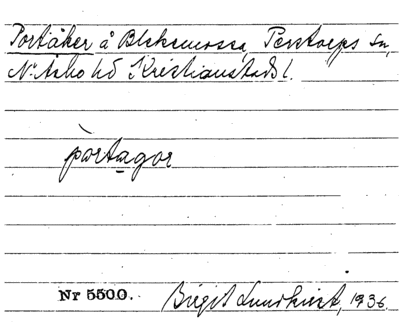 Portåker å Blekemossa, Perstorps sn,
N. Åsbo hd Kristianstads l.
pòrtagor
Nr 5500. Birgit Lundkvist, 1936.